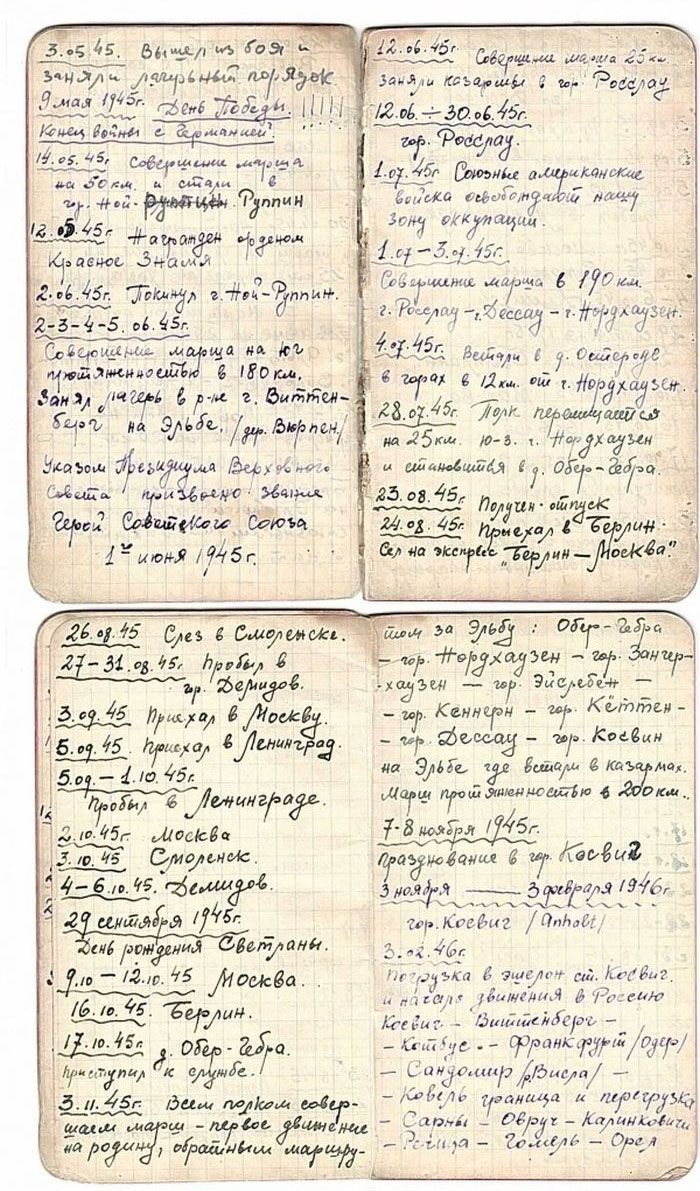 3.05.45. Вышел из боя и
заняли лагерный порядок
9 мая 1945г. День Победы!!!!!
Конец войны с Германией.
14.05.45г Совершение марша
на 50 км. и стали в
гор. Ной- Руппин
12.05.45г Награжден орденом
Красное Знамя
2.06.45г. Покинул г. Ной-Руппин.
2-3-4-5.06.45г.
Совершение марша на юг
протяженностью в 180 км.
Занял лагерь в р-не г. Виттен-
берг на Эльбе. /дер. Вюрпен/
Указом Президиума Верховного
Совета присвоено звание
Герой Советского Союза
1го июня 1945г.
12.06.45г. Совершение марша 25 км.
заняли казармы в гор. Росслау
12.06. ÷ 30.06.45г.
гор. Росслау.
1.07.45г. Союзные американские
войска освобождают нашу
зону оккупации.
1.07 – 3.07.45г.
Совершение марша в 190 км.
г. Росслау – г. Дессау – г. Нордхаузен.
4.07.45г. Встали в д. Остероде
в горах в 12 км. от г. Нордхаузен.
28.07.45г. Полк перемещается
на 25 км. ю-з. г. Нордхаузен
и становиться в д. Обер-Гебра.
23.08.45г. Получен отпуск
24.08.45г. Приехал в Берлин.
Сел на экспресс „Берлин – Москва".
26.08.45 Слез в Смоленске.
27–31.08.45г. Пробыл в
гор. Демидов.
3.09.45 Приехал в Москву.
5.09.45. Приехал в Ленинград.
5.09. – 1.10.45г.
Пробыл в Ленинграде.
2.10.45г. Москва
3.10.45 Смоленск.
4–6.10.45. Демидов.
29 сентября 1945г.
День рождения Светланы.
9.10 – 12.10.45 Москва.
16.10.45. Берлин.
17.10.45г. д. Обер-Гебра.
приступил к службе.
3.11.45г. Всем полком совер-
шаем марш – первое движение
на родину, обратным маршру-
том за Эльбу: Обер-Гебра
– гор. Нордхаузен – гор. Зангер-
-хаузен – гор. Эйслебен –
– гор. Кеннерн – гор. Кёттен –
– гор. Дессау – гор. Косвин
на Эльбе где встали в казармах.
Марш протяженностью в 200 км..
7-8 ноября 1945г.
празднование в гор. Косвиг
3 ноября — 3 февраля 1946г.
гор. Косвиг /Anholt/
3.02.46г.
Погрузка в эшелон ст. Косвиг.
и начало движения в Россию
Косвиг – Виттенберг –
– Котбус – Франкфурт /Одер/
– Сандомир /р. Висла/ –
– Ковель граница и перегрузка
– Сарны – Овруч – Калинковичи
– Речица – Гомель – Орел